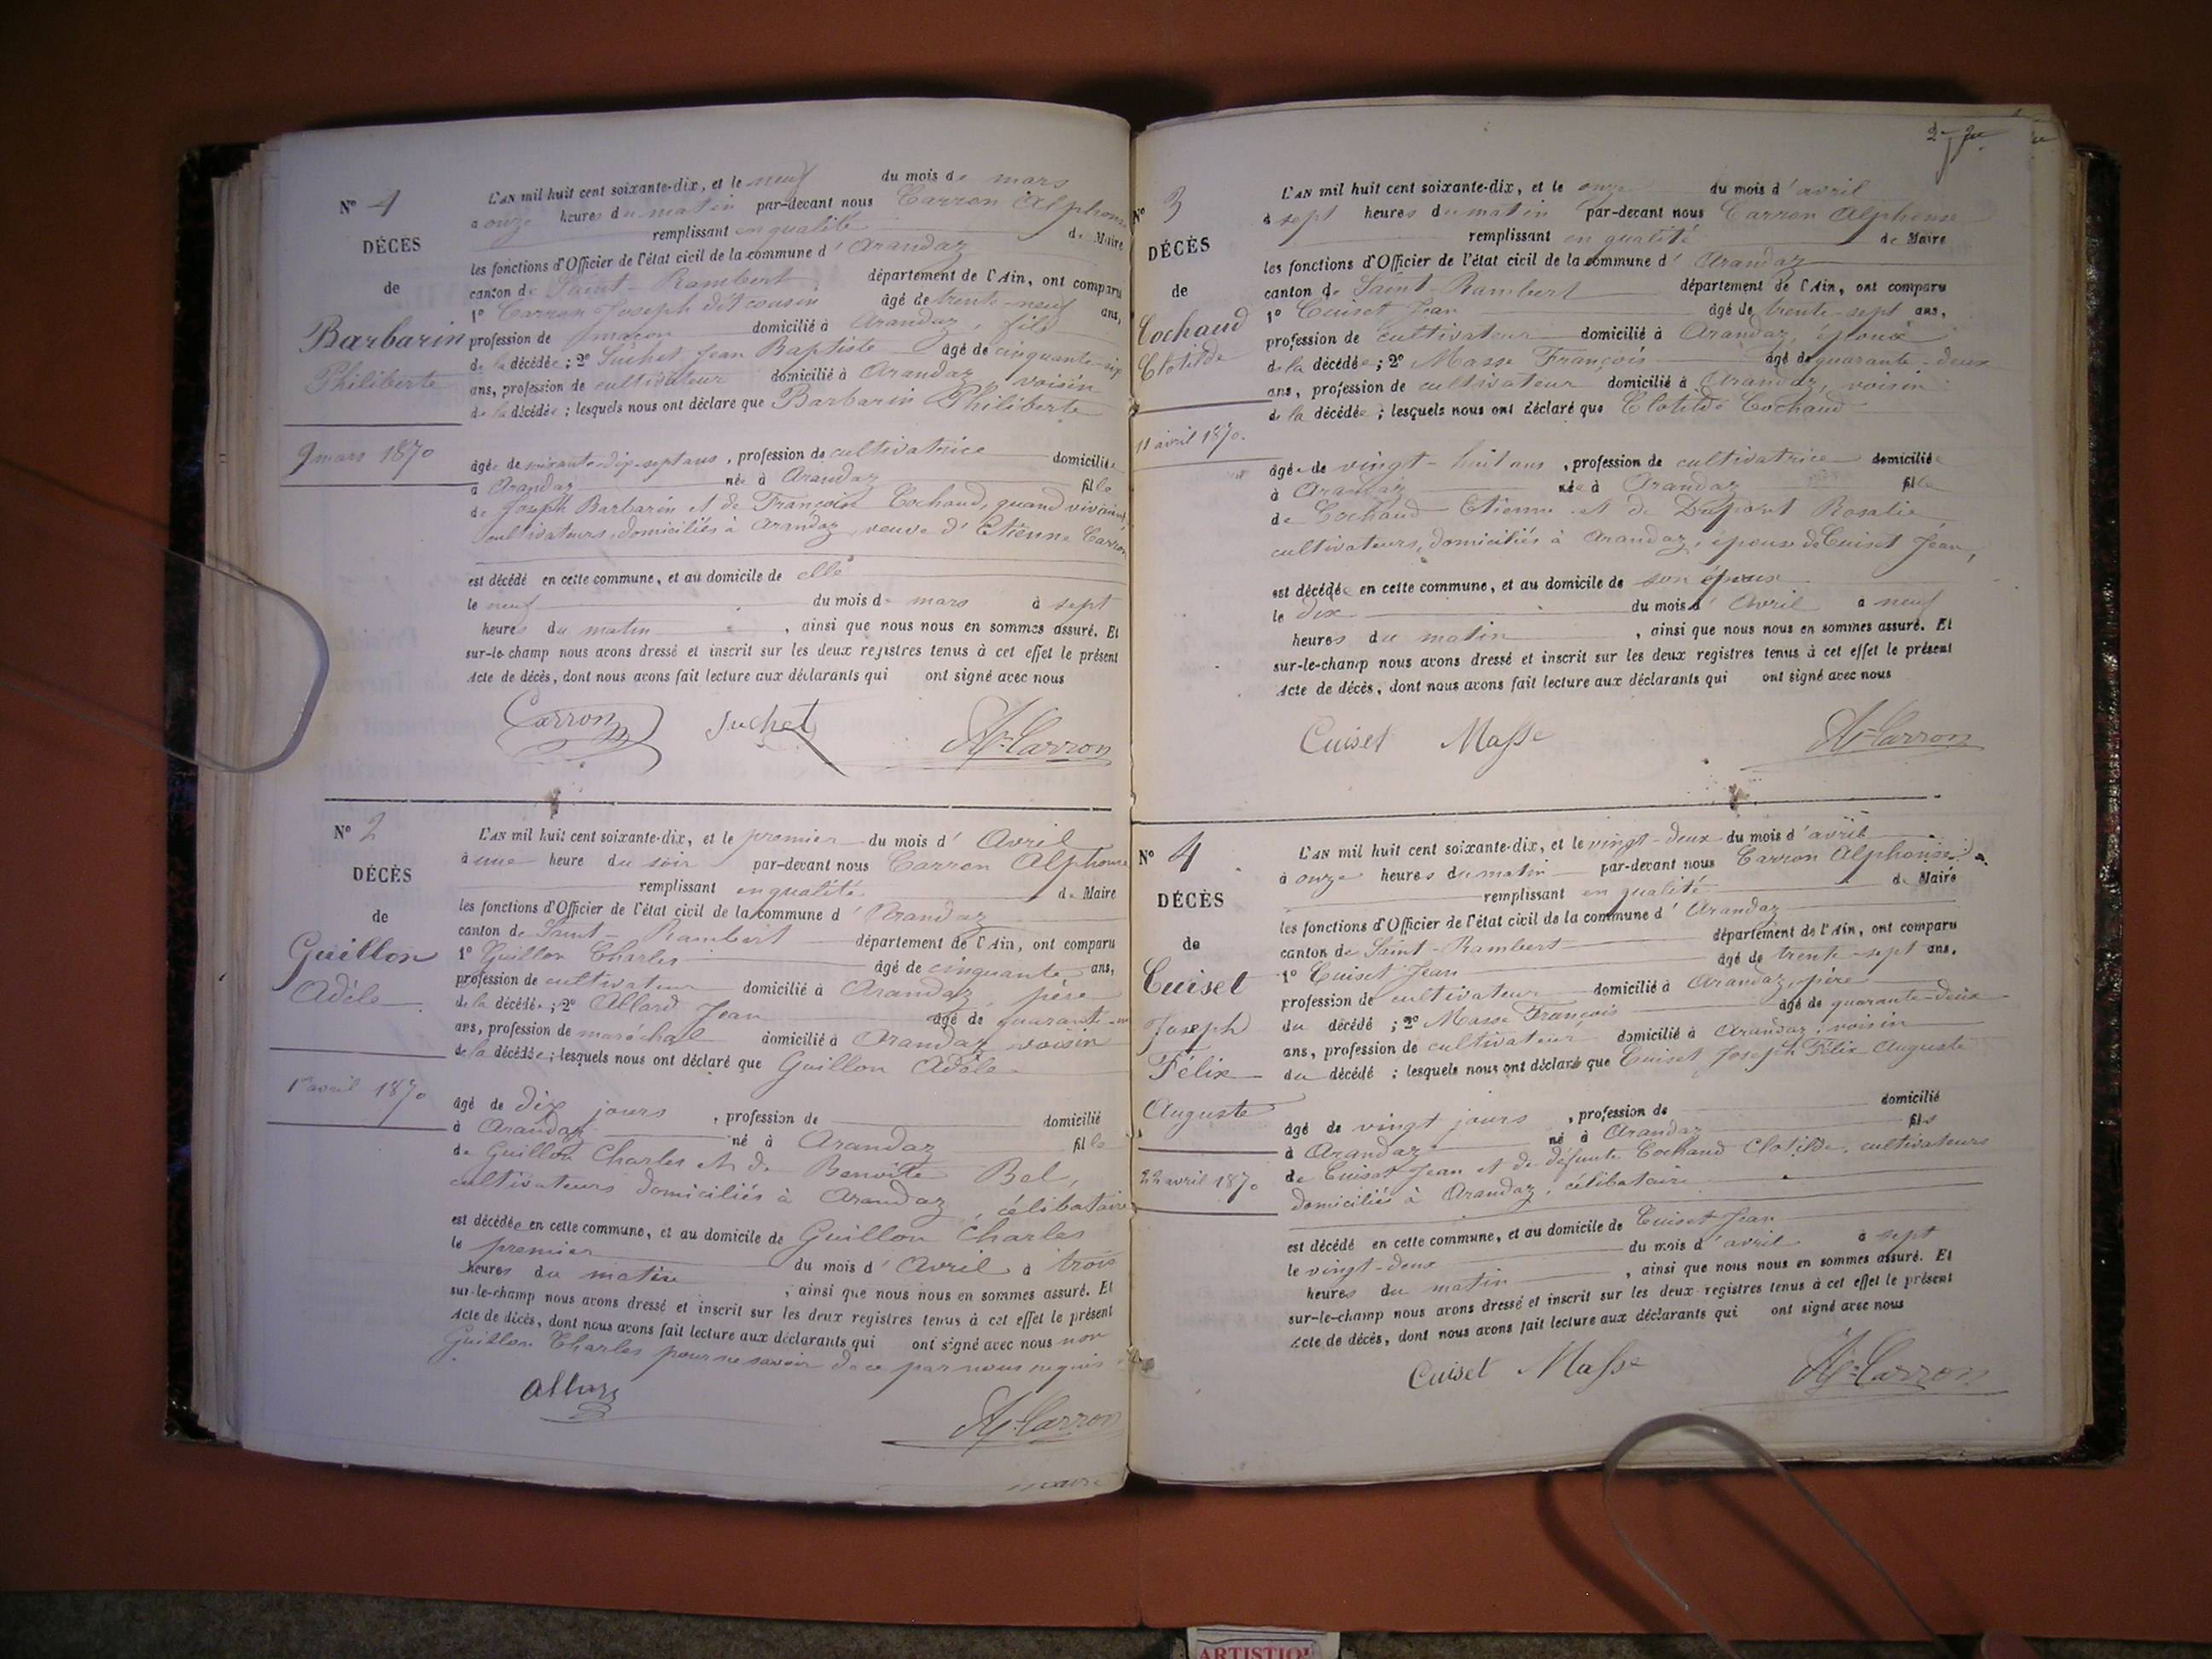 N° 1
DÉCÈS
de
Barbarin
Philiberte
9 mars 1870
L'AN mil huit cent soixante-dix, et le neuf du mois de mars
à onze heures du matin par-devant nous Carron Alphonse
remplissant en qualité de Maire
les fonctions d'Officier de l'état civil de la commune d'Arandaz
canton de Saint-Rambert département de l'Ain, ont comparu
1° Carron Joseph dit cousin âgé de trente-neuf ans,
profession de maçon domicilié à Arandaz, fils
de la décédée ; 2° Suchet Jean Baptiste âgé de cinquante-six
ans, profession de cultivateur domicilié à Arandaz, voisin
de la décédée ; lesquels nous ont déclaré que Barbarin Philiberte
âgée de soixante-dix-sept ans, profession de cultivatrice domiciliée
à Arandaz née à Arandaz fille
de Joseph Barbarin et de Françoise Cochaud, quand vivaient
cultivateurs, domiciliés à Arandaz, veuve d'Etienne Carron
est décédé en cette commune, et au domicile de elle
le neuf du mois de mars à sept
heures du matin, ainsi que nous nous en sommes assuré. Et
sur-le-champ nous avons dressé et inscrit sur les deux registres tenus à cet effet le présent
Acte de décès, dont nous avons fait lecture aux déclarants qui ont signé avec nous
Carron Suchet Aph Carron
N° 2
DÉCÈS
de
Guillon
Adèle
1er avril 1870
L'AN mil huit cent soixante-dix, et le premier du mois d'Avril
à une heure du soir par-devant nous Carron Alphonse
remplissant en qualité de Maire
les fonctions d'Officier de l'état civil de la commune d'Arandaz
canton de Saint-Rambert département de l'Ain, ont comparu
1° Guillon Charles âgé de cinquante ans,
profession de cultivateur domicilié à Arandaz, père
de la décédée ; 2° Allard Jean âgé de quarante-un
ans, profession de maréchal domicilié à Arandaz voisin
de la décédée ; lesquels nous ont déclaré que Guillon Adèle
âgé de dix jours, profession de domicilié
à Arandaz né à Arandaz fille
de Guillon Charles et de Benoite Bel,
cultivateurs domiciliés à Arandaz, célibataire
est décédée en cette commune, et au domicile de Guillon Charles
le premier du mois d'Avril à trois
heures du matin, ainsi que nous nous en sommes assuré. Et
sur-le-champ nous avons dressé et inscrit sur les deux registres tenus à cet effet le présent
Acte de décès, dont nous avons fait lecture aux déclarants qui ont signé avec nous non
Guillon Charles pour ne savoir de ce par nous requis
Allard Aph Carron
maire
N° 3
DÉCÈS
de
Cochaud
Clotilde
11 avril 1870.
L'AN mil huit cent soixante-dix, et le onze du mois d'avril
à sept heures du matin par-devant nous Carron Alphonse
remplissant en qualité de Maire
les fonctions d'Officier de l'état civil de la commune d'Arandaz
canton de Saint-Rambert département de l'Ain, ont comparu
1° Cuiset Jean âgé de trente-sept ans,
profession de cultivateur domicilié à Arandaz, époux
de la décédée ; 2° Masse François âgé de quarante-deux
ans, profession de cultivateur domicilié à Arandaz, voisin
de la décédée ; lesquels nous ont déclaré que Clotilde Cochaud
âgée de vingt-huit ans, profession de cultivatrice domiciliée
à Arandaz née à Arandaz fille
de Cochaud Etienne et de Dupont Rosalie,
cultivateurs, domiciliés à Arandaz, épouse de Cuiset Jean,
est décédée en cette commune, et au domicile de son époux
le dix du mois d'Avril à neuf
heures du matin, ainsi que nous nous en sommes assuré. Et
sur-le-champ nous avons dressé et inscrit sur les deux registres tenus à cet effet le présent
Acte de décès, dont nous avons fait lecture aux déclarants qui ont signé avec nous
Cuiset Masse Aph Carron
N° 4
DÉCÈS
de
Cuiset
Joseph
Félix
Auguste
22 avril 1870
L'AN mil huit cent soixante-dix, et le vingt-deux du mois d'avril
à onze heures du matin par-devant nous Carron Alphonse
remplissant en qualité de Maire
les fonctions d'Officier de l'état civil de la commune d'Arandaz
canton de Saint-Rambert département de l'Ain, ont comparu
1° Cuiset Jean âgé de trente-sept ans,
profession de cultivateur domicilié à Arandaz, père
du décédé ; 2° Masse François âgé de quarante-deux
ans, profession de cultivateur domicilié à Arandaz, voisin
du décédé ; lesquels nous ont déclaré que Cuiset Joseph Félix Auguste
âgé de vingt jours, profession de domicilié
à Arandaz né à Arandaz fils
de Cuiset Jean et de défunte Cochaud Clotilde, cultivateurs
domiciliés à Arandaz, célibataire
est décédé en cette commune, et au domicile de Cuiset Jean
le vingt-deux du mois d'avril à sept
heures du matin, ainsi que nous nous en sommes assuré. Et
sur-le-champ nous avons dressé et inscrit sur les deux registres tenus à cet effet le présent
Acte de décès, dont nous avons fait lecture aux déclarants qui ont signé avec nous
Cuiset Masse Aph Carron